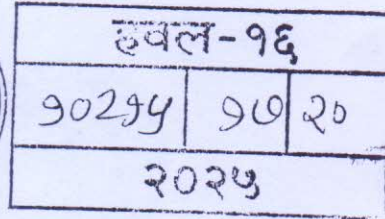 हवल-१६
१०२१५ १७ २०
२०२५